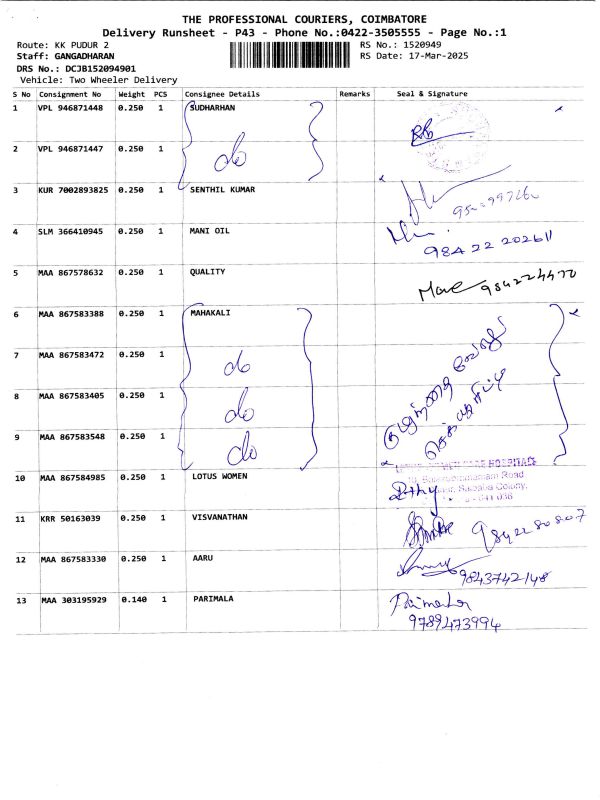 THE PROFESSIONAL COURIERS, COIMBATORE
Delivery Runsheet - P43 - Phone No.:0422-3505555 - Page No.:1
Route: KK PUDUR 2 RS No.: 1520949
Staff: GANGADHARAN RS Date: 17-Mar-2025
DRS No.: DCJB152094901
Vehicle: Two Wheeler Delivery
S No Consignment No Weight PCS Consignee Details Remarks Seal & Signature
1 VPL 946871448 0.250 1 SUDHARHAN
2 VPL 946871447 0.250 1 do
3 KUR 7002893825 0.250 1 SENTHIL KUMAR
4 SLM 366410945 0.250 1 MANI OIL
98422 202611
5 MAA 867578632 0.250 1 QUALITY
6 MAA 867583388 0.250 1 MAHAKALI
7 MAA 867583472 0.250 1 do
8 MAA 867583405 0.250 1 do
9 MAA 867583548 0.250 1 do
10 MAA 867584985 0.250 1 LOTUS WOMEN
11 KRR 50163039 0.250 1 VISVANATHAN
9842280807
12 MAA 867583330 0.250 1 AARU
9843742148
13 MAA 303195929 0.140 1 PARIMALA
9789473994